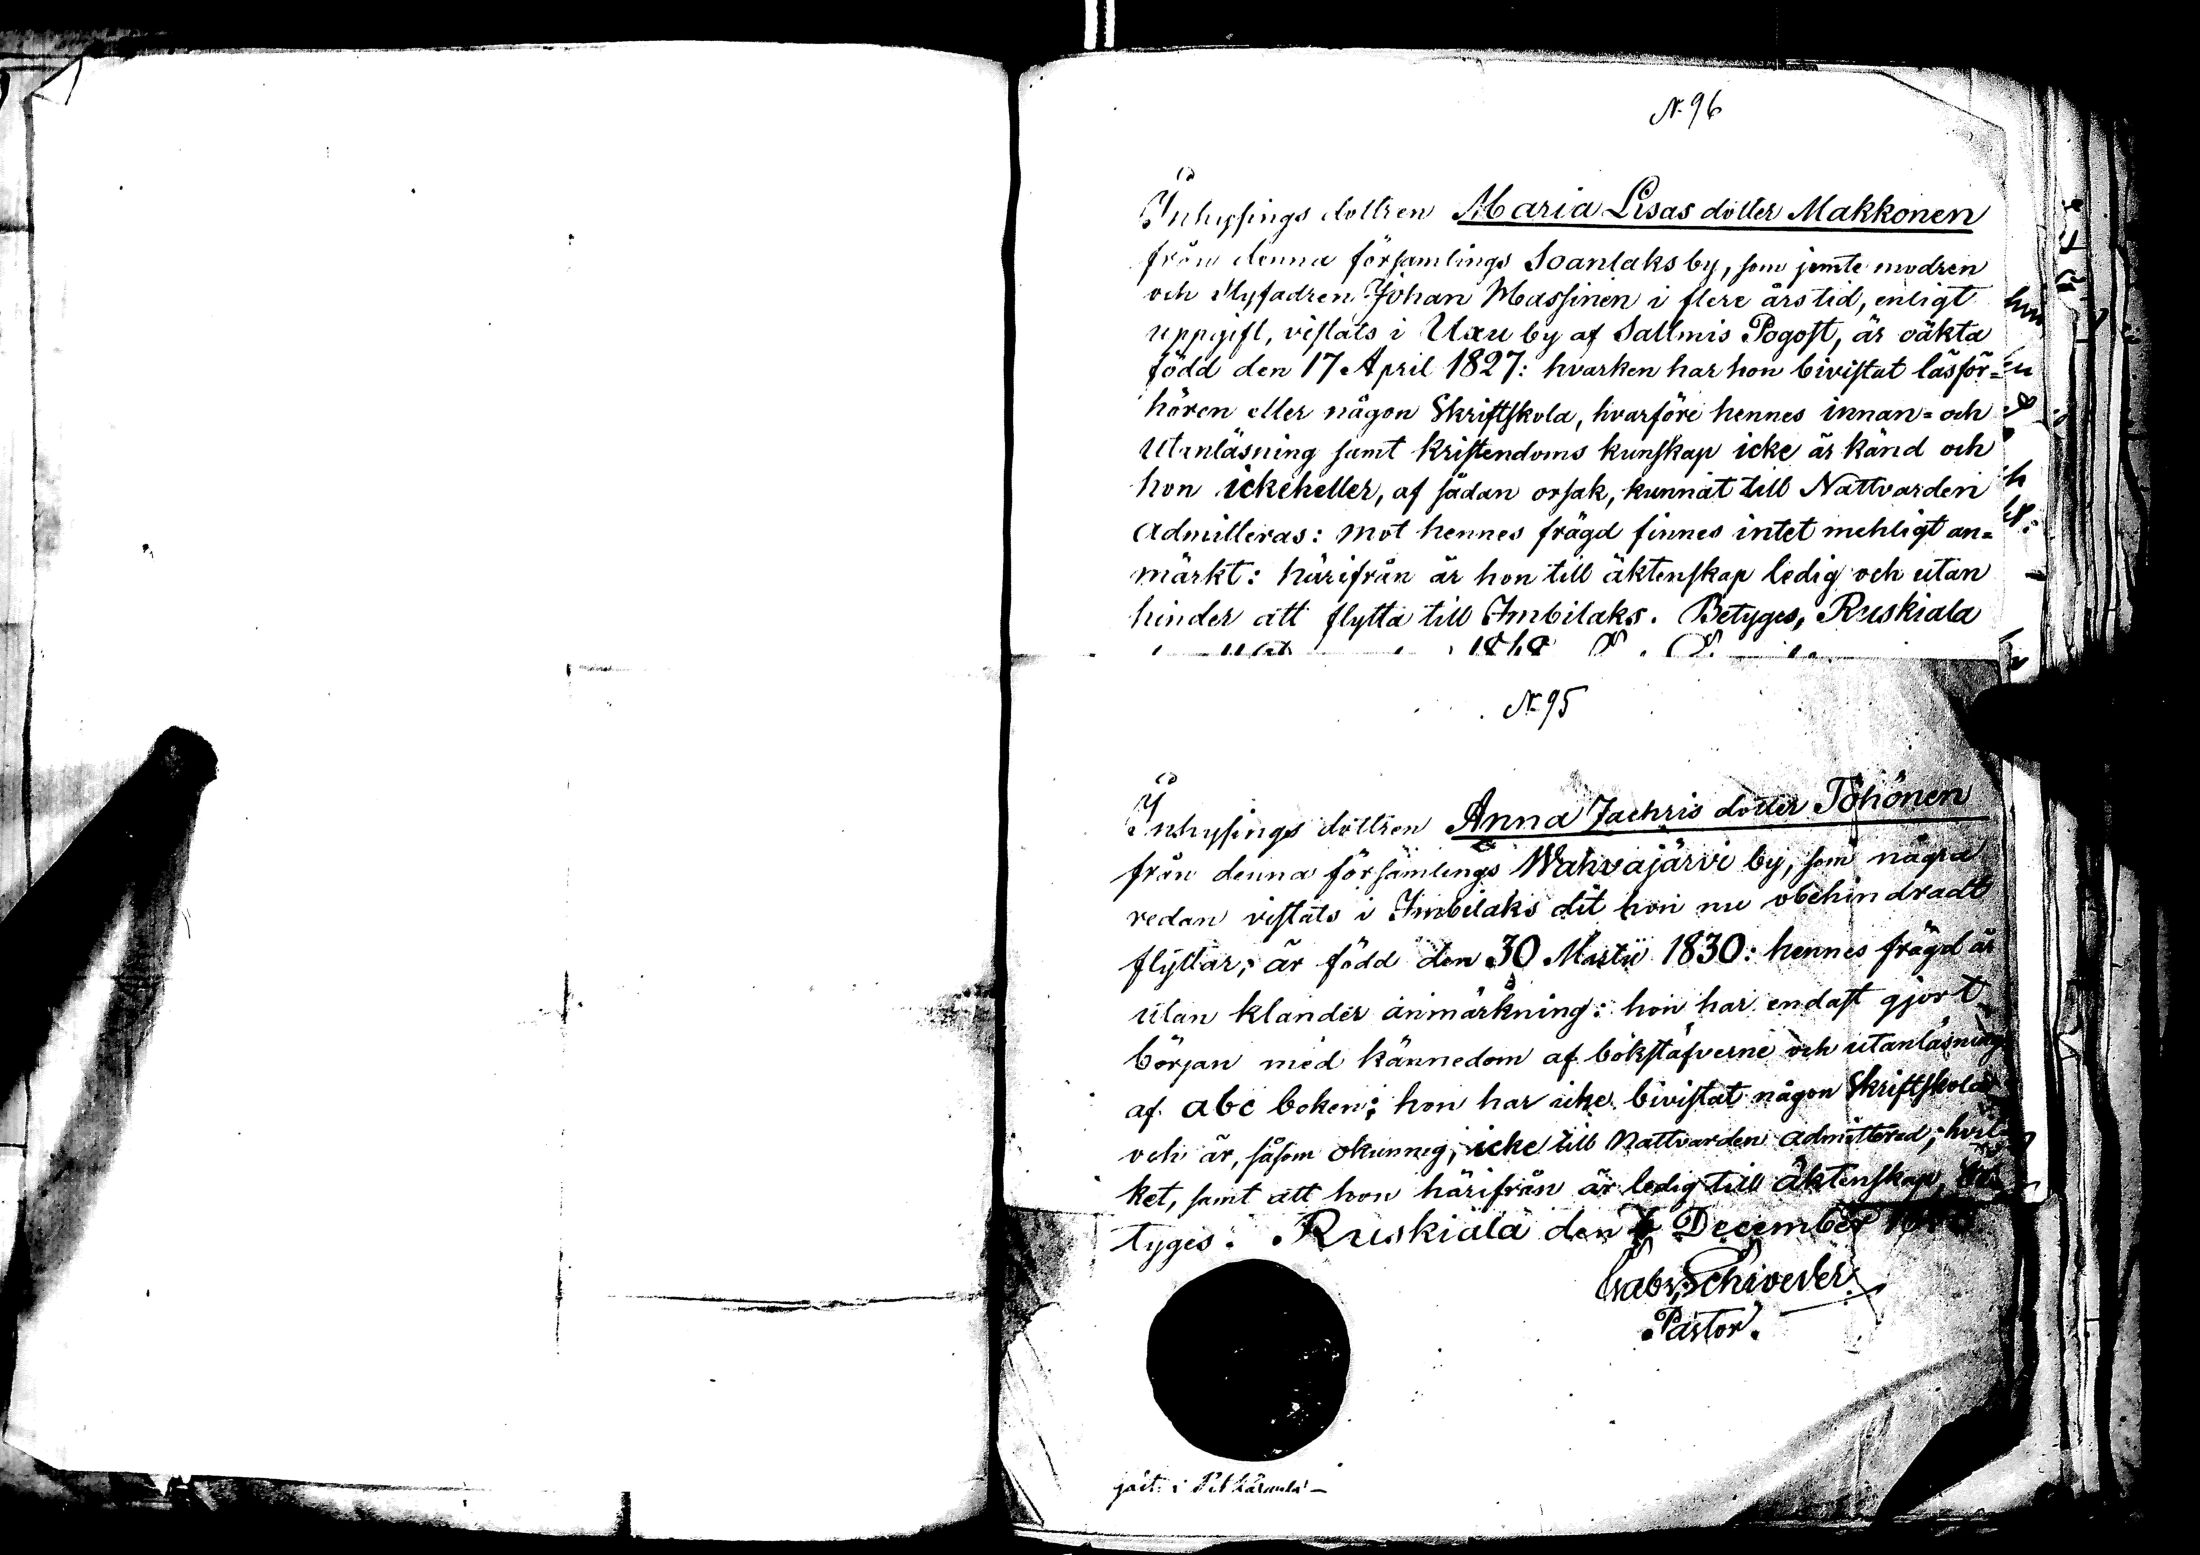 N. 96
Inhysings dottren Maria Lisas dotter Makkonen
från denna församlings Soanlaks by, som jemte modren
och styfadren Johan Massinen i flere års tid, enligt
uppgift, vistats i Uxu by af Sallmis Pogost, är oäkta
född den 17 April 1827: hvarken har hon bivistat läsför=
hören eller någon Skriftskola, hvarföre hennes innan= och
utanläsning samt kristendoms kunskap icke är känd och
hon ickeheller, af sådan orsak, kunnat till Nattvarden
admitteras: mot hennes frägd finnes intet mehligt an=
märkt: härifrån är hon till äktenskap ledig och utan
hinder att flytta till Imbilaks. Betyges, Ruskiala
N. 95
Inhysings dottren Anna Zachris dotter Töhönen
från denna församlings Wahvajärvi by, som några
redan vistats i Imbilaks dit hon nu obehindradt
flyttar, är född den 30 Martii 1830: hennes frägd är
utan klander anmärkning: hon har endast gjort
början med kännedom af bokstäfverne och utanläsning
af abc boken; hon har icke bivistat någon Skriftskola
och är, såsom okunnig, icke till Nattvarden admitterad; hvil=
ket, samt att hon härifrån är ledig till äktenskap, be
tyges. Ruskiala den December
Gabr. Schiverler
Pastor.
i Pitkäranta